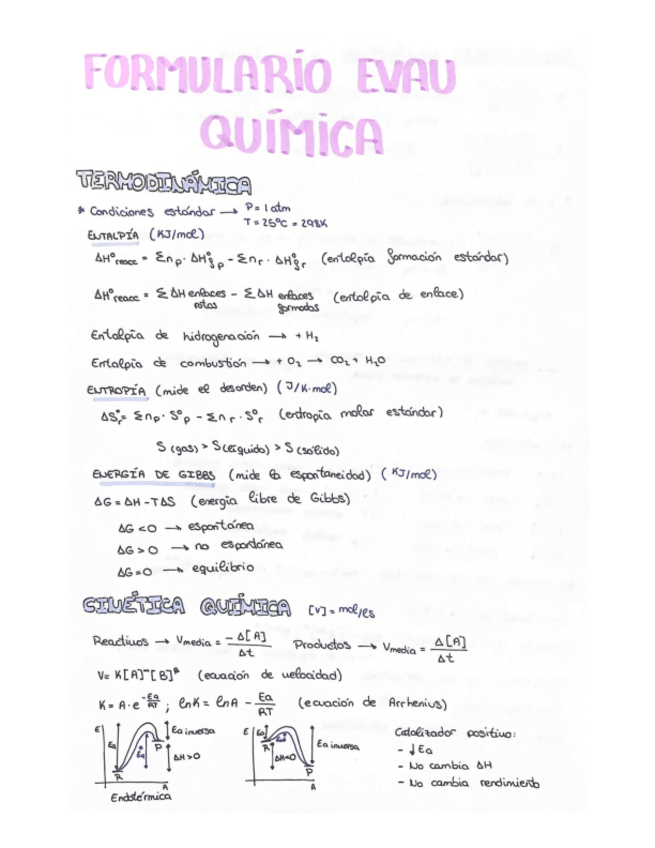 FORMULARÍO EVAU
QUÍMICA
TERMODINÁMICA
* Condiciones estándar → P = 1 atm
T = 25ºC = 298K
ENTALPÍA (KJ/mol)
ΔHºreacc = Σnp · ΔHºfp - Σnr · ΔHºfr (entalpía formación estándar)
ΔHºreacc = ΣΔH enlaces rotos - ΣΔH enlaces formados (entalpía de enlace)
Entalpía de hidrogenación → + H₂
Entalpía de combustión → + O₂ → CO₂ + H₂O
ENTROPÍA (mide el desorden) (J/K·mol)
ΔSºr = Σnp · Sºp - Σnr · Sºr (entropía molar estándar)
S (gas) > S (líquido) > S (sólido)
ENERGÍA DE GIBBS (mide la espontaneidad) (KJ/mol)
ΔG = ΔH - TΔS (energía libre de Gibbs)
ΔG < 0 → espontánea
ΔG > 0 → no espontánea
ΔG = 0 → equilibrio
CINÉTICA QUÍMICA [V] = mol/l·s
Reactivos → Vmedia = -Δ[A]/Δt Productos → Vmedia = Δ[A]/Δt
V = K[A]^α[B]^β (ecuación de velocidad)
K = A·e^(-Ea/RT) ; lnK = lnA - Ea/RT (ecuación de Arrhenius)
E Ea Ea P Ea inversa ΔH>0 R A
Endotérmica
E Ea R Ea ΔH<0 P Ea inversa A
Catalizador positivo:
- ↓Ea
- No cambia ΔH
- No cambia rendimiento